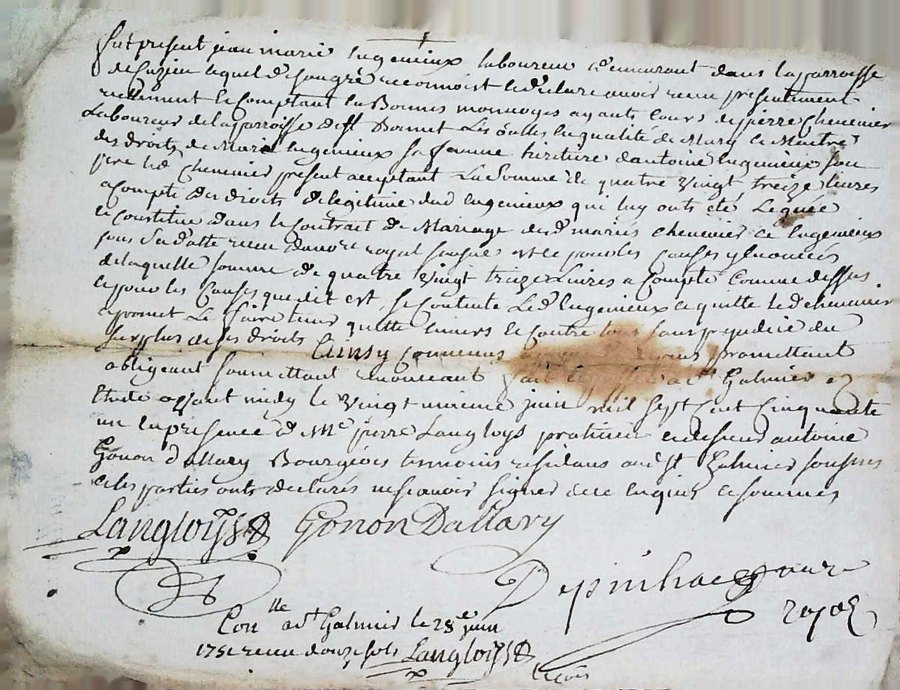 fut present jean marie Ingenieux laboureur demeurant dans la parroisse
de Cuzieu lequel de son gré reconnoist et declare avoir receu presentement
reellement et Comptant en Bonnes monnoyes ayants Cours de pierre Chenevier
Laboureur de la parroisse de st Bonnet Les oulles en qualité de Mary et Maitre
des droits de Marie Ingenieux sa femme heritiere d'antoine Ingenieux son
pere led Chenevier present acceptant La Somme de quatre vingt treize livres
a Compte des droits de legitime dud Ingenieux qui luy onts eté Legués
et Constitués dans le Contract de Mariage desd mariés chenevier et Ingenieux
sous Sa datte receu du nore royal sousné et ce pour les Causes y enoncées
de laquelle somme de quatre vingt treize livres a Compte Comme dessus
et pour les Causes que dit est se Contente Led Ingenieux et quitte led chenevier
et promet Le faire tenir quitte envers et Contre tous sans prejudice du
surplus de ses droits Ainsy Convenus promettant
obligeant soumettant renonceant fait et a st Galmier en
Etude avant midy le vingt unieme juin mil sept Cent Cinquante
un En presence de Me pierre Langloys praticien et de sieur antoine
Gonon dallary Bourgeois temoins residans aud st Galmier sousnés
et les parties onts declarés ne sçavoir signer de ce enquis et sommés
Langloys Gonon Dallary
Depinhac nore
royal
Conlle a st Galmier le 28e juin
1751 receu douze sols Langloys